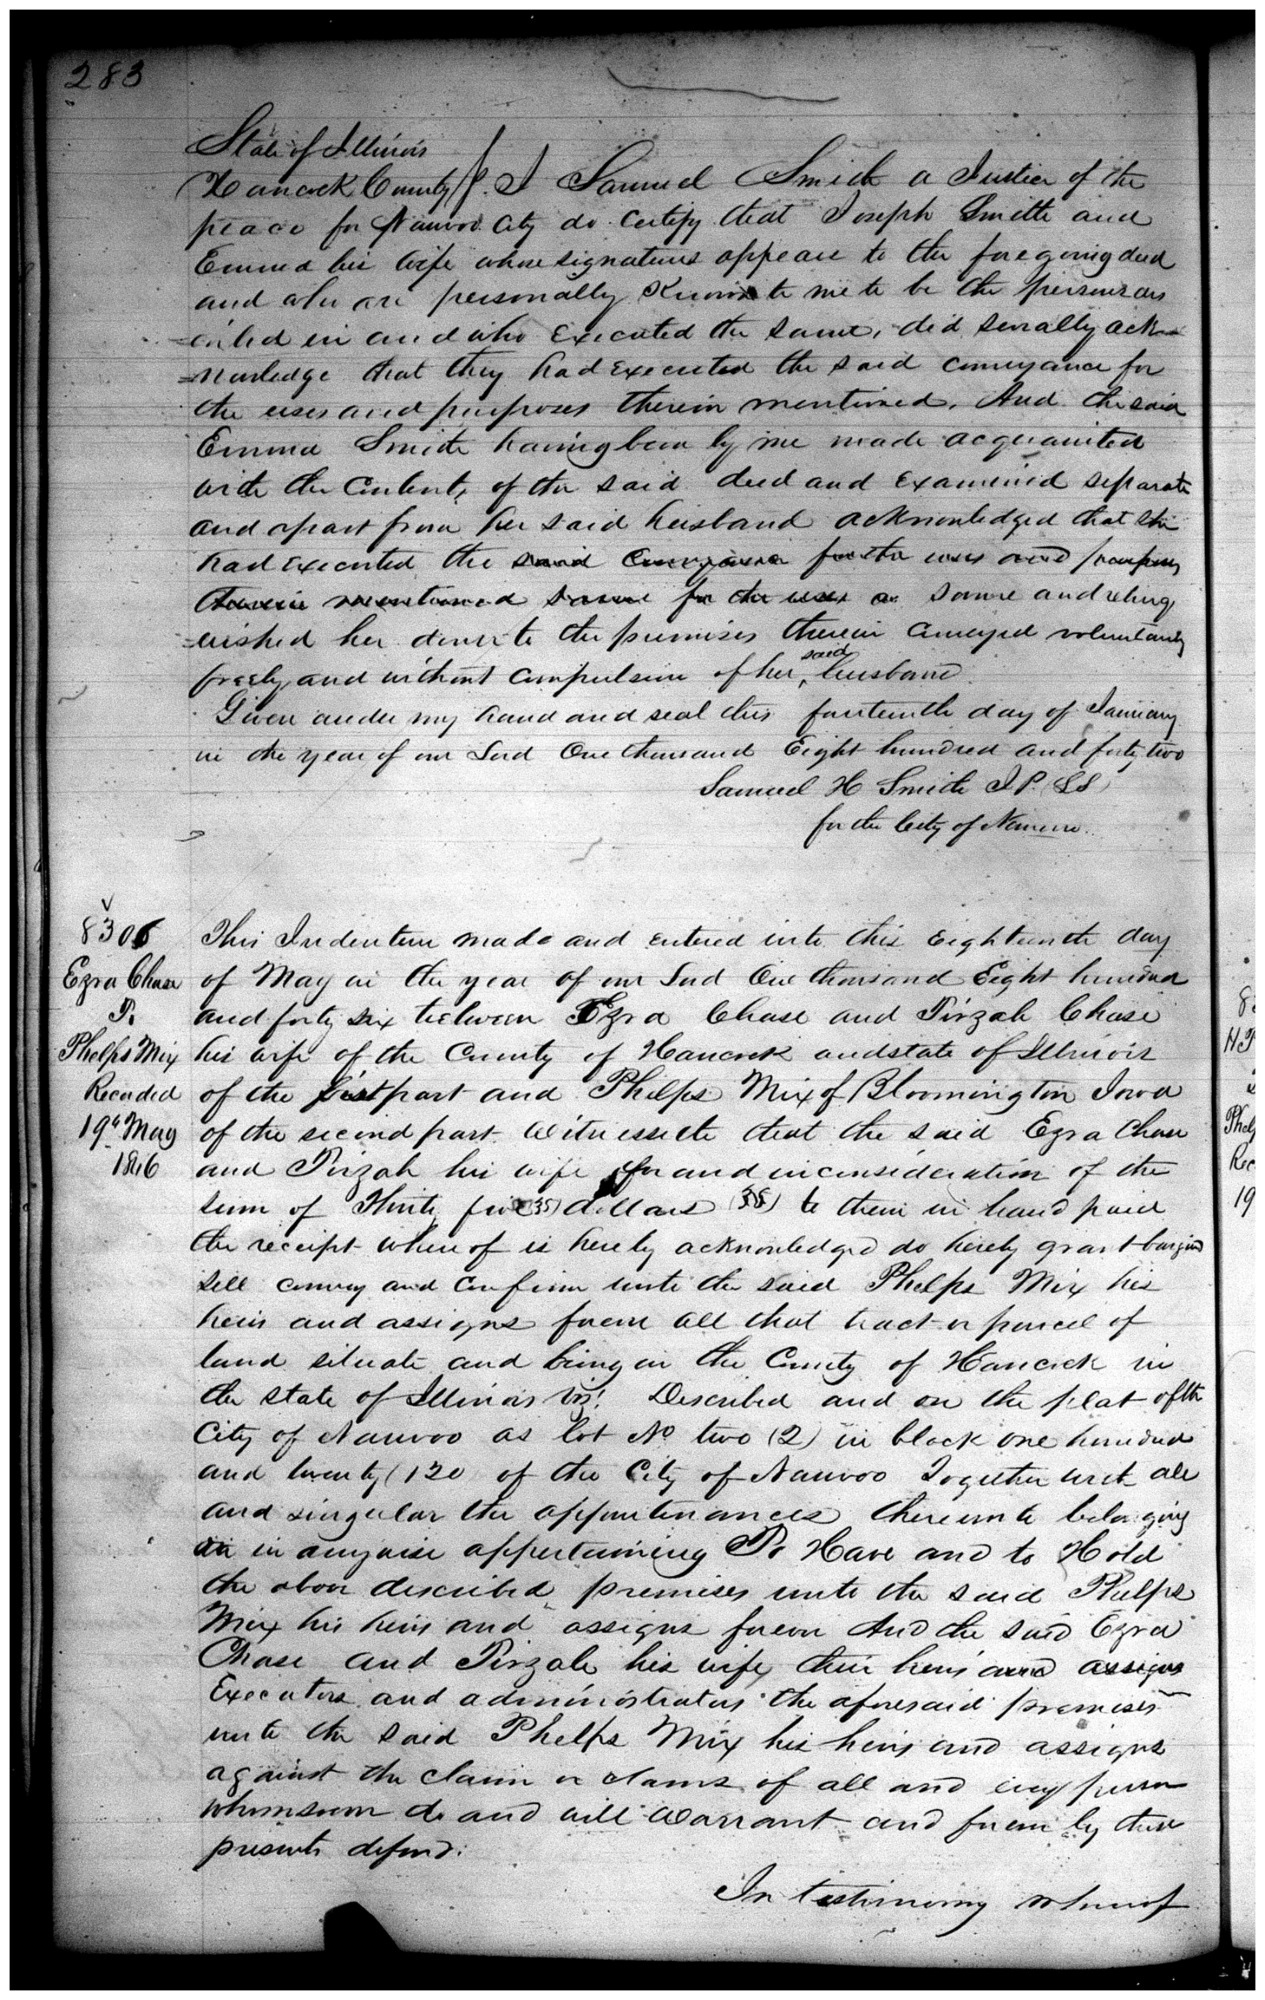 283
State of Illinois
Hancock County }. I Samuel Smith a Justice of the
peace for Nauvoo City do certify that Joseph Smith and
Emma his wife whose signatures appear to the foregoing deed
and who are personally Known to me to be the persons des
=cribed in and who executed the same, did severally ack=
=nowledge that they had executed the said conveyance for
the uses and purposes therein mentioned. And the said
Emma Smith having been by me made acquainted
with the contents of the said deed and examined separate
and apart from her said husband acknowledged that she
had executed the said conveyance for the uses and purposes
therein mentioned same for the uses a same and relinq
=uished her dower to the premises therein conveyed voluntarily
freely and without compulsion of her said husband.
Given under my hand and seal this fourteenth day of January
in the year of our Lord One thousand Eight hundred and forty two
Samuel H Smith J.P. (LS)
for the City of Nauvoo.
8306
Ezra Chase
To
Phelps Mix
Recorded
19th May
1846
This Indenture made and entered into this eighteenth day
of May in the year of our Lord One thousand Eight hundred
and forty six between Ezra Chase and Tirzah Chase
his wife of the County of Hancock and state of Illinois
of the first part and Phelps Mix of Bloomington Iowa
of the second part Witnesseth that the said Ezra Chase
and Tirzah his wife for and in consideration of the
sum of Thirty five (35) dollars (35) to them in hand paid
the receipt whereof is hereby acknowledged do hereby grant bargain
sell convey and confirm unto the said Phelps Mix his
heirs and assigns forever all that tract or parcel of
land situate and being in the County of Hancock in
the state of Illinois viz: Described and on the plat of the
City of Nauvoo as lot No two (2) in block one hundred
and twenty (120 of the City of Nauvoo Together with all
and singular the appurtenances thereunto belonging
in anywise appertaining To Have and to Hold
the above described premises unto the said Phelps
Mix his heirs and assigns forever And the said Ezra
Chase and Tirzah his wife their heirs and assigns
Executors and administrators the aforesaid premises
unto the said Phelps Mix his heirs and assigns
against the claim or claims of all and every person
whomsoever do and will warrant and forever by these
presents defend.
In testimony whereof